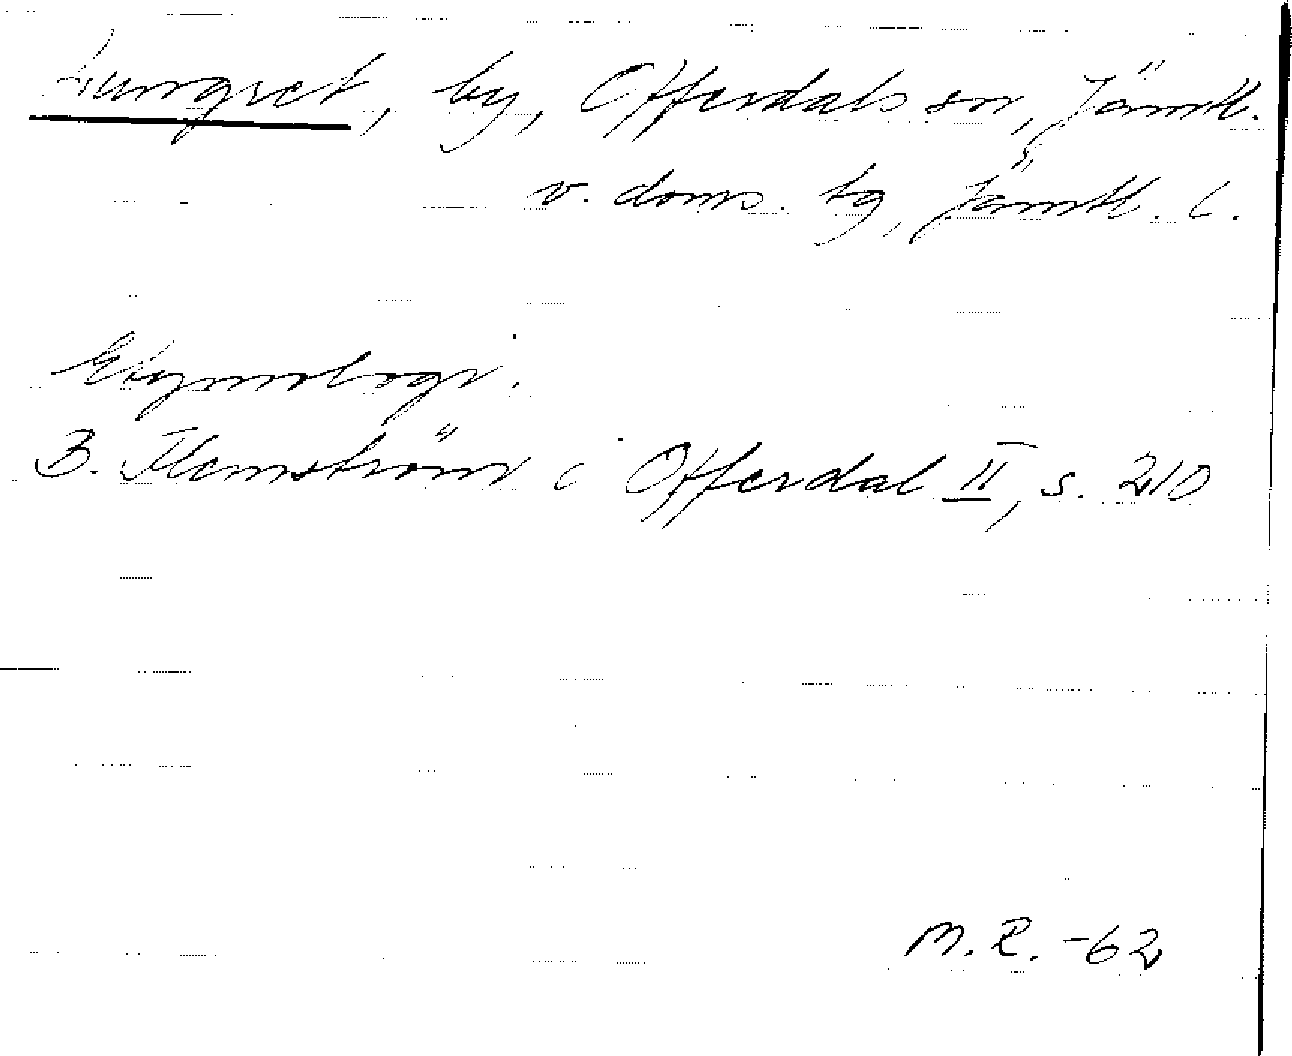 Lungret, by, Offerdals sn, Jämtl.
v. doms. tg, Jämtl. l.
Etymologi.
B. Flemström i Offerdal II, s. 210
M. R. -62